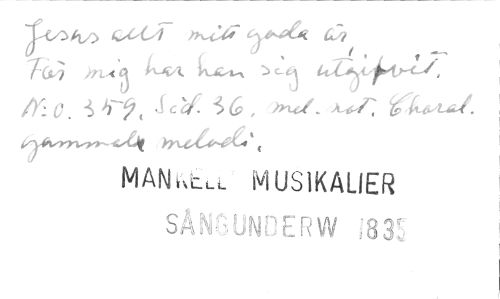 Jesus allt mitt goda är,
För mig har han sig utgifvit.
N:o. 359. Sid. 36. mel. not. Choral.
gammal melodi.
MANKELL MUSIKALIER
SÅNGUNDERW 1835